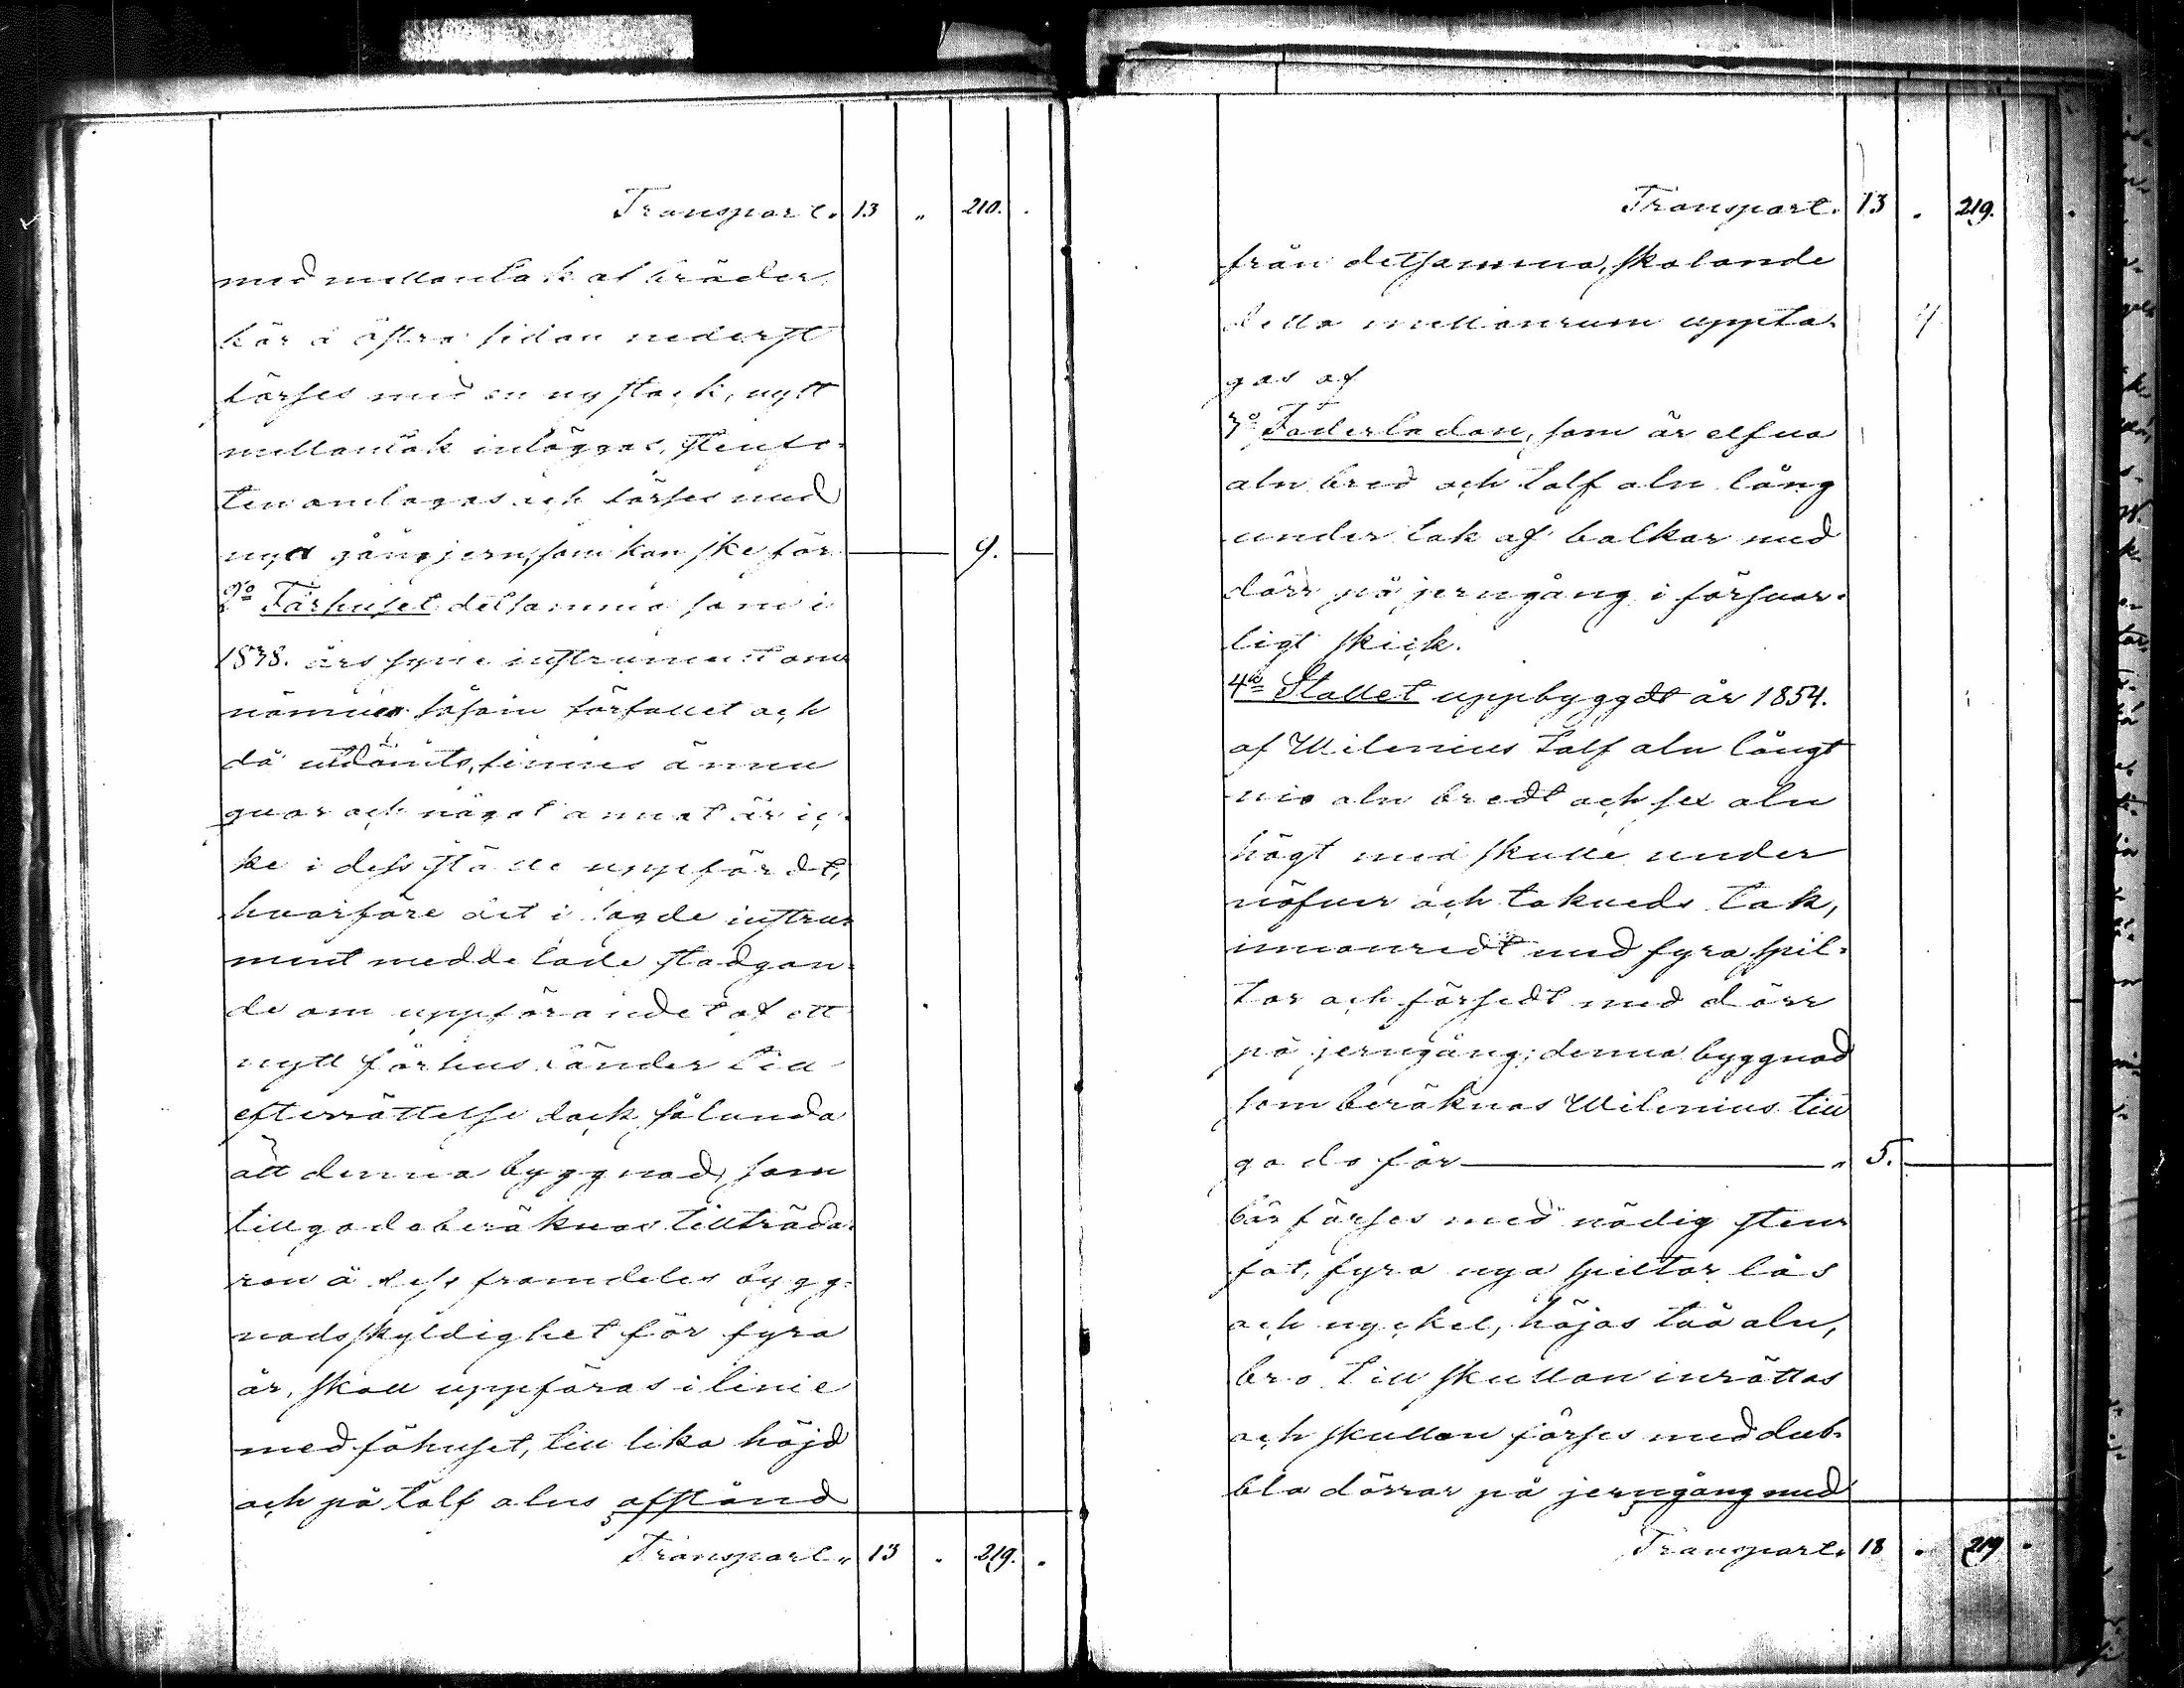 Transport. 13 " 210. .
med mellantak af bräder,
bör å östra sidan nederst
förses med en ny stock, nytt
mellantak inläggas, stenfo-
ten omlagas och förses med
nytt gångjern, som kan ske för 9.
2:o Fårhuset detsamma som i
1838. års syne instrument om
nämnes såsom förfallet och
då utdömts, finnes ännu
qvar och något annat är ic-
ke i dess ställe uppfördt,
hvarföre det i sagde instru-
ment meddelade stadgan-
de om uppförandet af ett
nytt fårhus länder till
efterrättelse dock sålunda
att denna byggnad, som
tillgodoberäknas tillträda-
ren å dess framdeles bygg-
nadsskyldighet för fyra
år, skall uppföras i linie
med fähuset, till lika höjd
och på tolf alns afstånd
Transport. 13 . 219. .
Transport. 13 . 219. .
från detsamma, skolande
detta mellanrum uppta-
gas af
3:o Foderladan, som är elfva
aln bred och tolf aln lång
under tak af balkar med
dörr på jerngång i försvar-
ligt skick.
4:o Stallet uppbyggdt år 1854.
af Wilenius tolf aln långt
nio aln bredt och sex aln
högt med skulle under
näfver och takveds tak,
innanredt med fyra spil-
tor och försedt med dörr
på jerngång; denna byggnad
som beräknas Wilenius till
godo för " 5.
bör förses med nödig sten-
fot, fyra nya spiltor lås
och nyckel, höjas två aln,
bro till skullan inrättas
och skullan förses med dub-
bla dörrar på jerngång med
Transport. 18 . 219 .